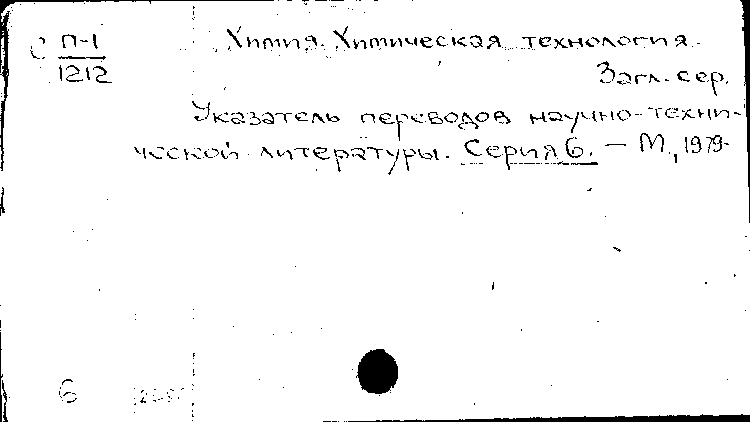 С П-1
1212
Химия. Химическая технология.
Загл. сер.
Указатель переводов научно-техни-
ческой литературы. Серия 6. — М., 1979-
6